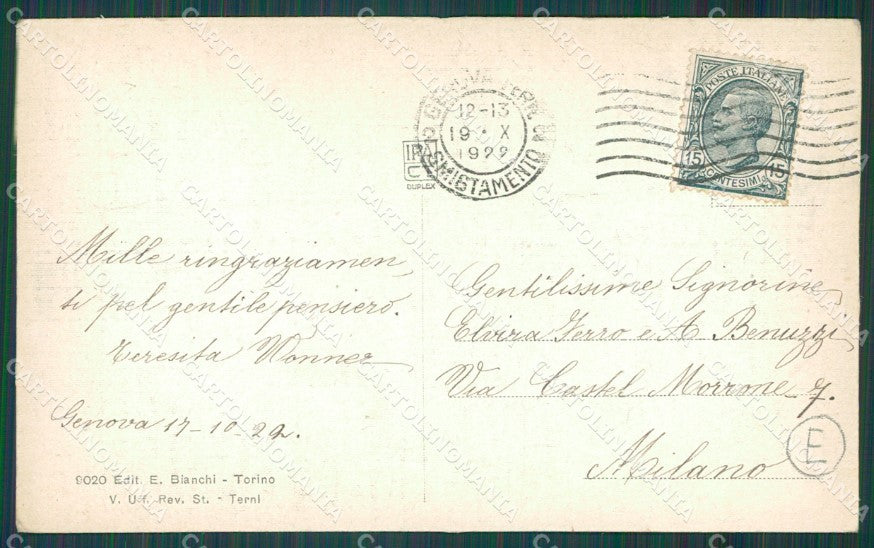 GENOVA FERR
12-13
19 · X
1922
SMISTAMENTO
DUPLEX
POSTE ITALIANE
15 CENTESIMI 15
Mille ringraziamen,
ti pel gentile pensiero.
Teresita Wonner
Genova 17-10-22.
9020 Edit. E. Bianchi - Torino
V. Uff. Rev. St. - Terni
Gentilissime Signorine
Elvira Ferro e A. Benuzzi
Via Castel Morrone 7.
Milano
E
CARTOLINOMANIA